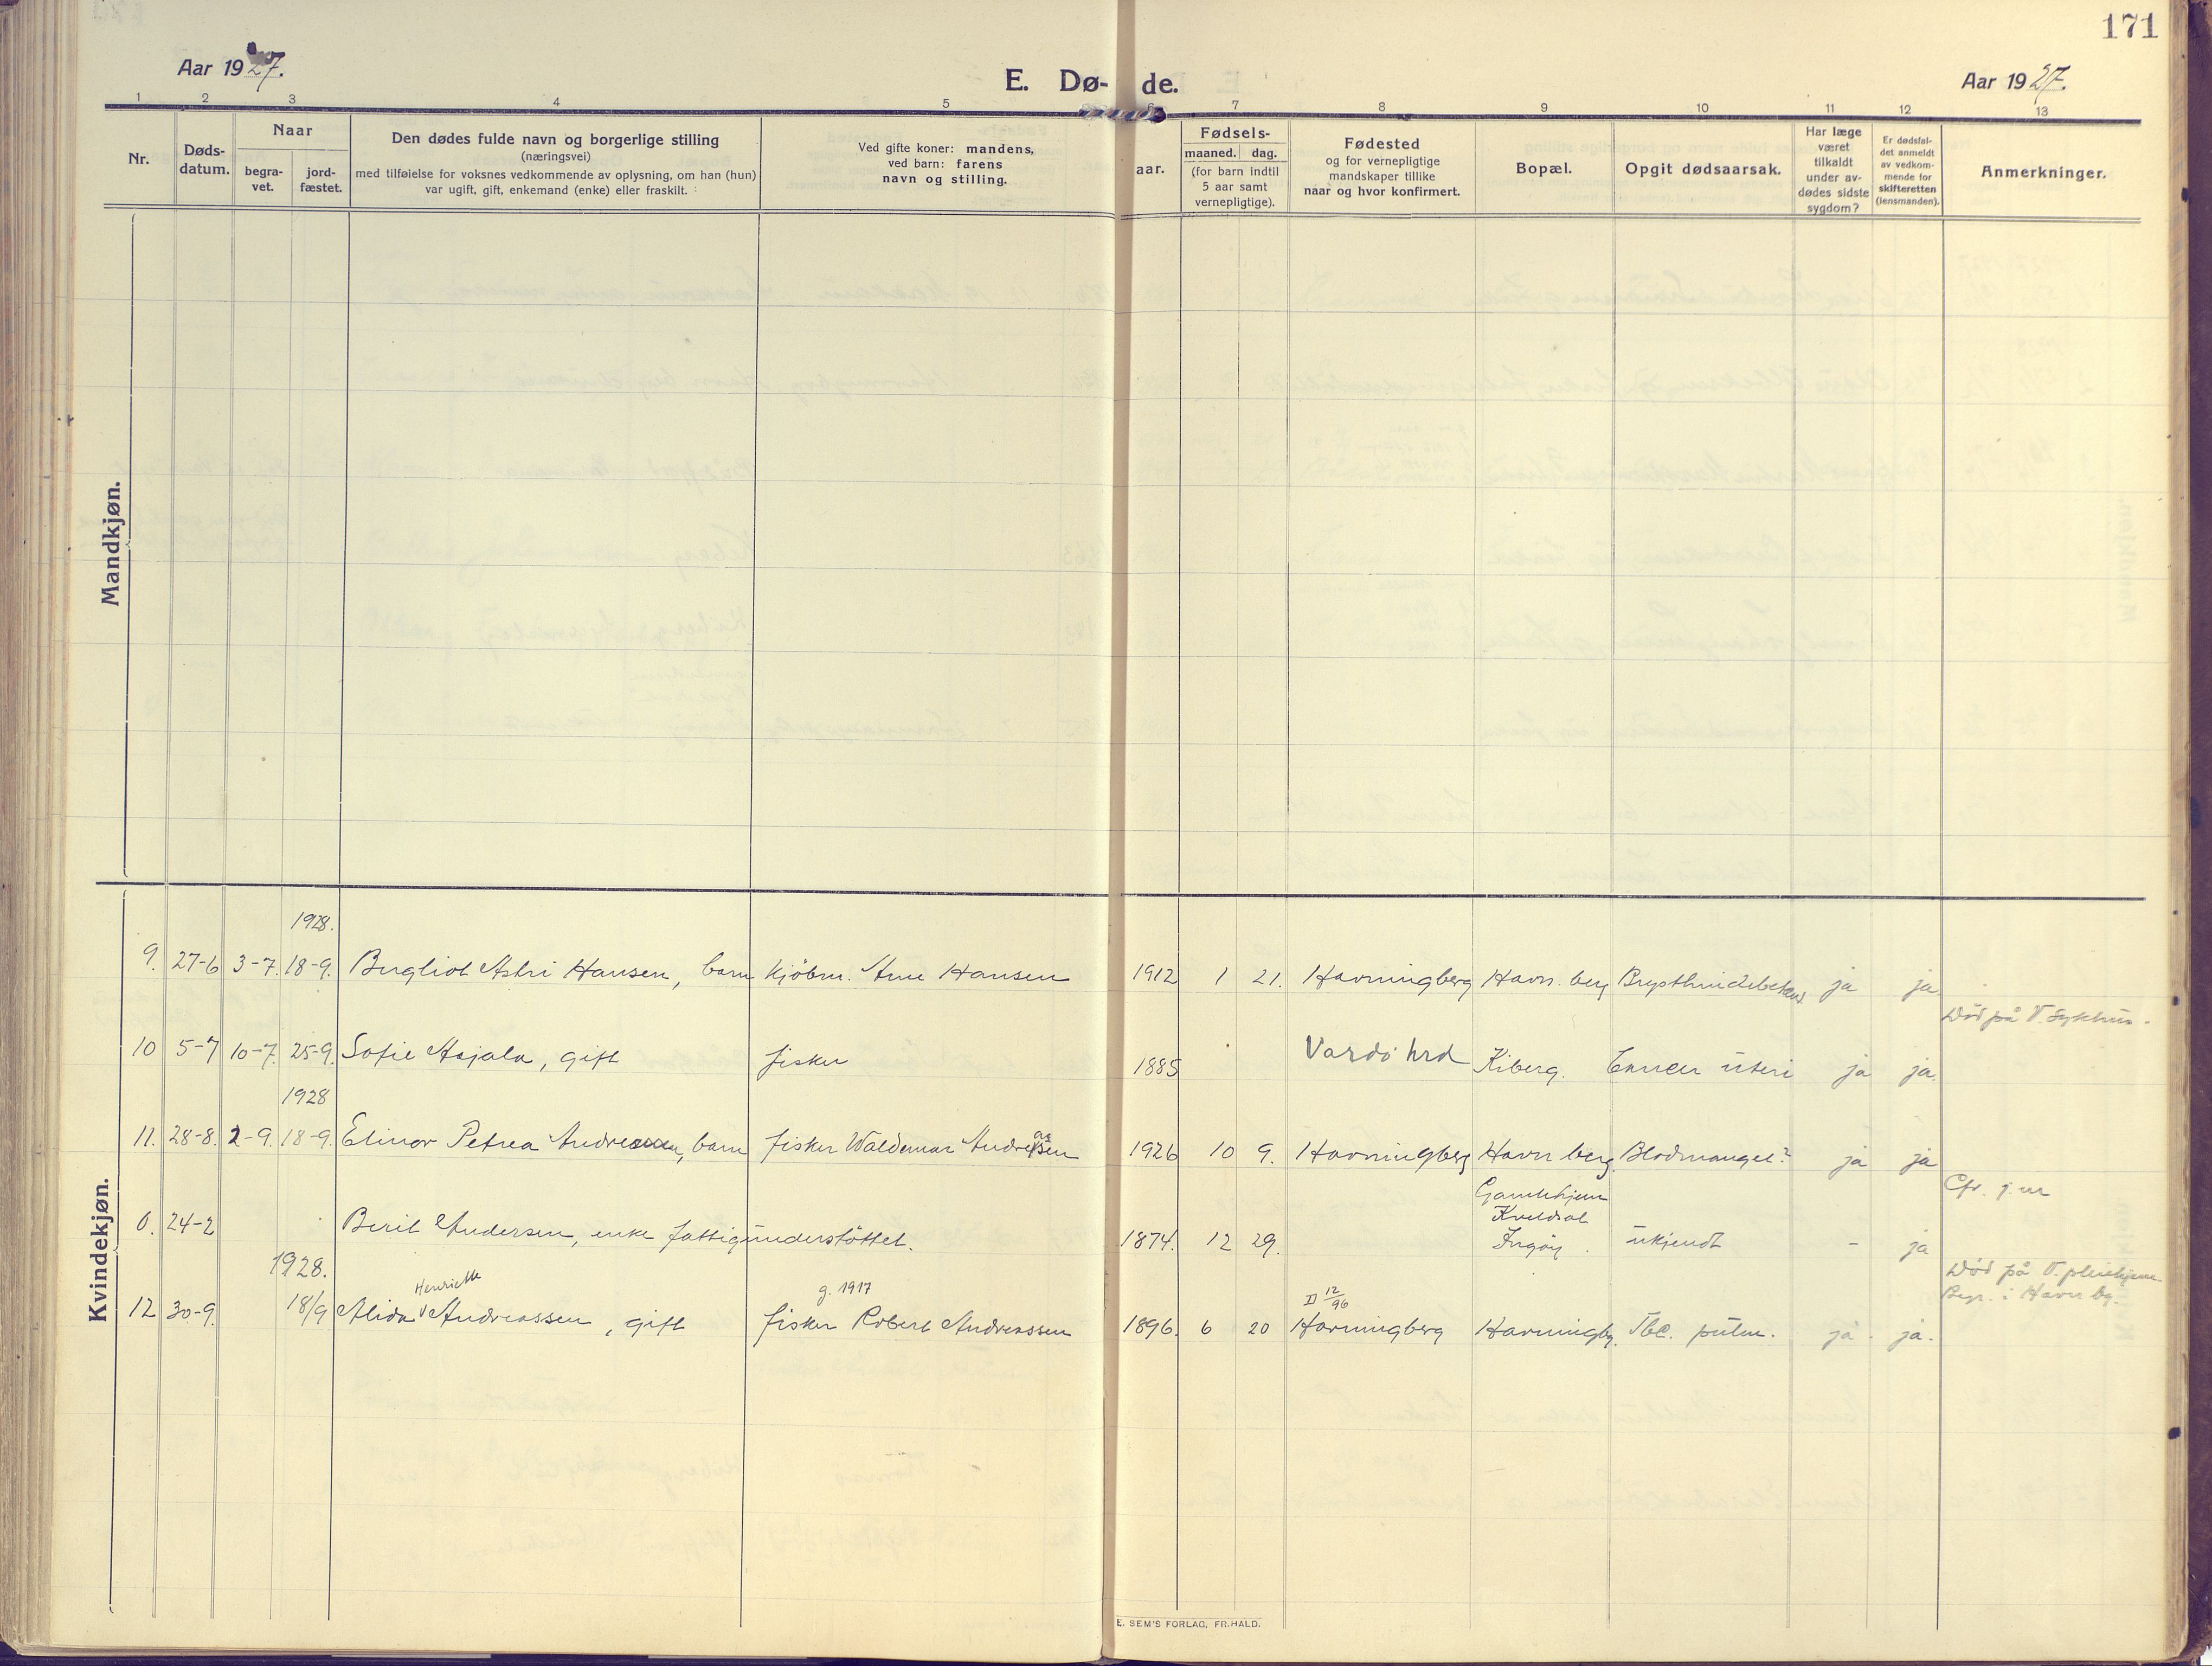 171
Aar 1927.
E. Dø- de.
Aar 1927.
1 2 3 4 5 6 7 8 9 10 11 12 13
Nr.
Døds-
datum.
Naar
begra-
vet.
jord-
fæstet.
Den dødes fulde navn og borgerlige stilling
(næringsvei)
med tilføielse for voksnes vedkommende av oplysning, om han (hun)
var ugift, gift, enkemand (enke) eller fraskilt.
Ved gifte koner: mandens,
ved barn: farens
navn og stilling.
aar.
Fødsels-
maaned. dag.
(for barn indtil
5 aar samt
vernepligtige).
Fødested
og for vernepligtige
mandskaper tillike
naar og hvor konfirmert.
Bopæl.
Opgit dødsaarsak.
Har læge
været
tilkaldt
under av-
dødes sidste
sygdom?
Er dødsfal-
det anmeldt
av vedkom-
mende for
skifteretten
(lensmanden).
Anmerkninger.
Mandkjøn.
Kvindekjøn.
1928.
9. 27-6 3-7. 18-9. Bergliot Astri Hansen, barn kjöbm. Arne Hansen 1912 1 21. Havningberg Havn. berg ja ja.
Död på V. Sykehus.
10 5-7 10-7. 25-9. Sofie Asjala, gift fisker 1885 Vardö hrd Kiberg. Cancer uteri ja ja.
1928
11. 28-8. 2-9. 18-9. Elinor Petrea Andreassen, barn fisker Waldemar Andreassen 1926 10 9. Havningberg Havn berg Blodmangel? ja ja
Gamlehjem
Kveldsol
0. 24-2 Berit Andersen, enke fattigunderstöttet. 1874. 12 29. Ingöy. ukjendt - ja
1928.
Henriette
g. 1917
D 12/96
Död på V. pleiehjem
Begr. i Havn bg.
12 30-9. 18/9 Alida Andreassen, gift fisker Robert Andreassen 1896. 6 20 Havningberg Havningbg. Tbc. pulm. ja. ja.
E. SEM'S FORLAG, FR.HALD.